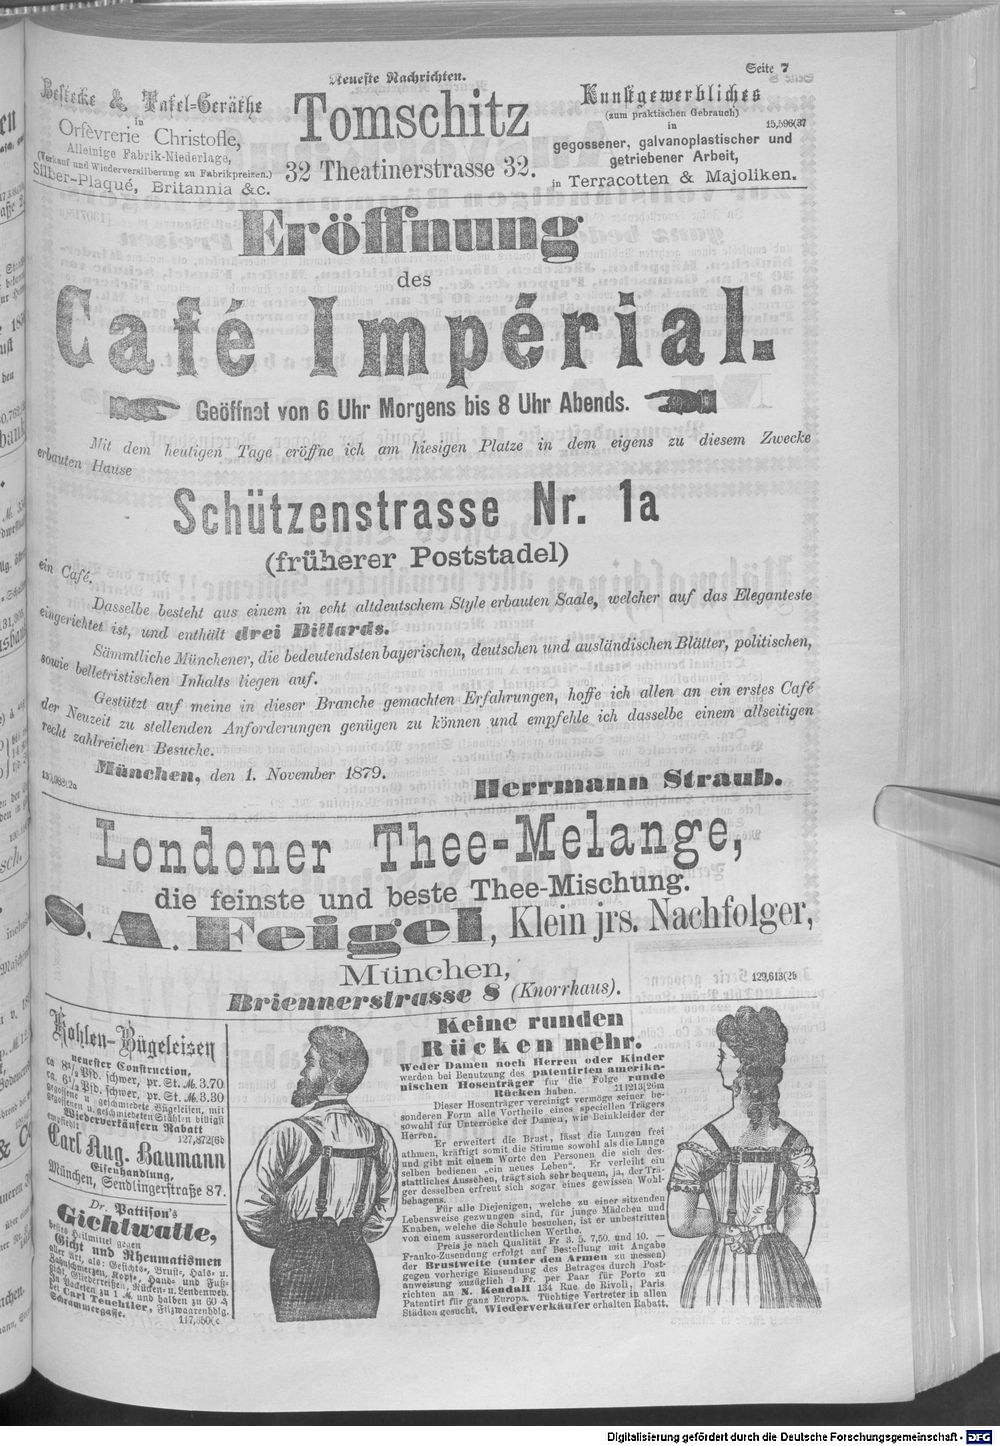 Neueste Nachrichten.
Seite 7
Bestecke & Tafel=Geräthe
in
Orfèvrerie Christofle,
Alleinige Fabrik-Niederlage,
(Verkauf und Wiederversilberung zu Fabrikpreisen.)
Silber-Plaqué, Britannia &c.
Tomschitz
32 Theatinerstrasse 32.
Kunstgewerbliches
(zum praktischen Gebrauch)
in 15,596(37
gegossener, galvanoplastischer und
getriebener Arbeit,
in Terracotten & Majoliken.
Eröffnung
des
Café Impérial.
Geöffnet von 6 Uhr Morgens bis 8 Uhr Abends.
Mit dem heutigen Tage eröffne ich am hiesigen Platze in dem eigens zu diesem Zwecke
erbauten Hause
Schützenstrasse Nr. 1a
(früherer Poststadel)
ein Café.
Dasselbe besteht aus einem in echt altdeutschem Style erbauten Saale, welcher auf das Eleganteste
eingerichtet ist, und enthält drei Billards.
Sämmtliche Münchener, die bedeutendsten bayerischen, deutschen und ausländischen Blätter, politischen,
sowie belletristischen Inhalts liegen auf.
Gestützt auf meine in dieser Branche gemachten Erfahrungen, hoffe ich allen an ein erstes Café
der Neuzeit zu stellenden Anforderungen genügen zu können und empfehle ich dasselbe einem allseitigen
recht zahlreichen Besuche.
München, den 1. November 1879.
Herrmann Straub.
Londoner Thee-Melange,
die feinste und beste Thee-Mischung.
S. A. Feigel, Klein jrs. Nachfolger,
München,
129,613(2b
Briennerstrasse 8 (Knorrhaus).
Kohlen-Bügeleisen
neuester Construction,
ca 8½ Pfd. schwer, pr. St. M. 3.70
ca. 6½ Pfd. schwer, pr. St. M. 3.30
gegossene u. geschmiedete Bügeleisen, mit
gegossenen u. geschmiedeten Stählen billigst
empfiehlt Wiederverkäufern Rabatt
127,872(6b
Carl Aug. Baumann
Eisenhandlung,
München, Sendlingerstraße 87.
Dr. Pattison's
Gichtwatte,
bestes Heilmittel gegen
Gicht und Rheumatismen
aller Art, als: Gesichts-, Brust-, Hals- u.
Zahnschmerzen, Kopf-, Hand- und Fuß-
gicht, Gliederreißen, Rücken- u. Lendenweh.
In Packeten zu 1 M. und halben zu 60 ₰
bei Carl Teuchtler, Filzwaarenhdlg.
Schrammergasse. 117,350(c
Keine runden
Rücken mehr.
Weder Damen noch Herren oder Kinder
werden bei Benutzung des patentirten amerika-
nischen Hosenträger für die Folge runde
Rücken haben. 11213(26m
Dieser Hosenträger vereinigt vermöge seiner be-
sonderen Form alle Vortheile eines speciellen Trägers
sowohl für Unterröcke der Damen, wie Beinkleider der
Herren.
Er erweitert die Brust, lässt die Lungen frei
athmen, kräftigt somit die Stimme sowohl als die Lunge
und gibt mit einem Worte den Personen die sich des-
selben bedienen „ein neues Leben“. Er verleiht ein
stattliches Aussehen, trägt sich sehr bequem, ja, der Trä-
ger desselben erfreut sich sogar eines gewissen Wohl-
behagens.
Für alle Diejenigen, welche zu einer sitzenden
Lebensweise gezwungen sind, für junge Mädchen und
Knaben, welche die Schule besuchen, ist er unbestritten
von einem ausserordentlichen Werthe.
Preis je nach Qualität Fr 3. 5. 7,50. und 10. —
Franko-Zusendung erfolgt auf Bestellung mit Angabe
der Brustweite (unter den Armen zu messen)
gegen vorherige Einsendung des Betrages durch Post-
anweisung zuzüglich 1 Fr. per Paar für Porto zu
richten an N. Kendall 134 Rue de Rivoli, Paris
Patentirt für ganz Europa. Tüchtige Vertreter in allen
Städten gesucht. Wiederverkäufer erhalten Rabatt.
Digitalisierung gefördert durch die Deutsche Forschungsgemeinschaft - DFG